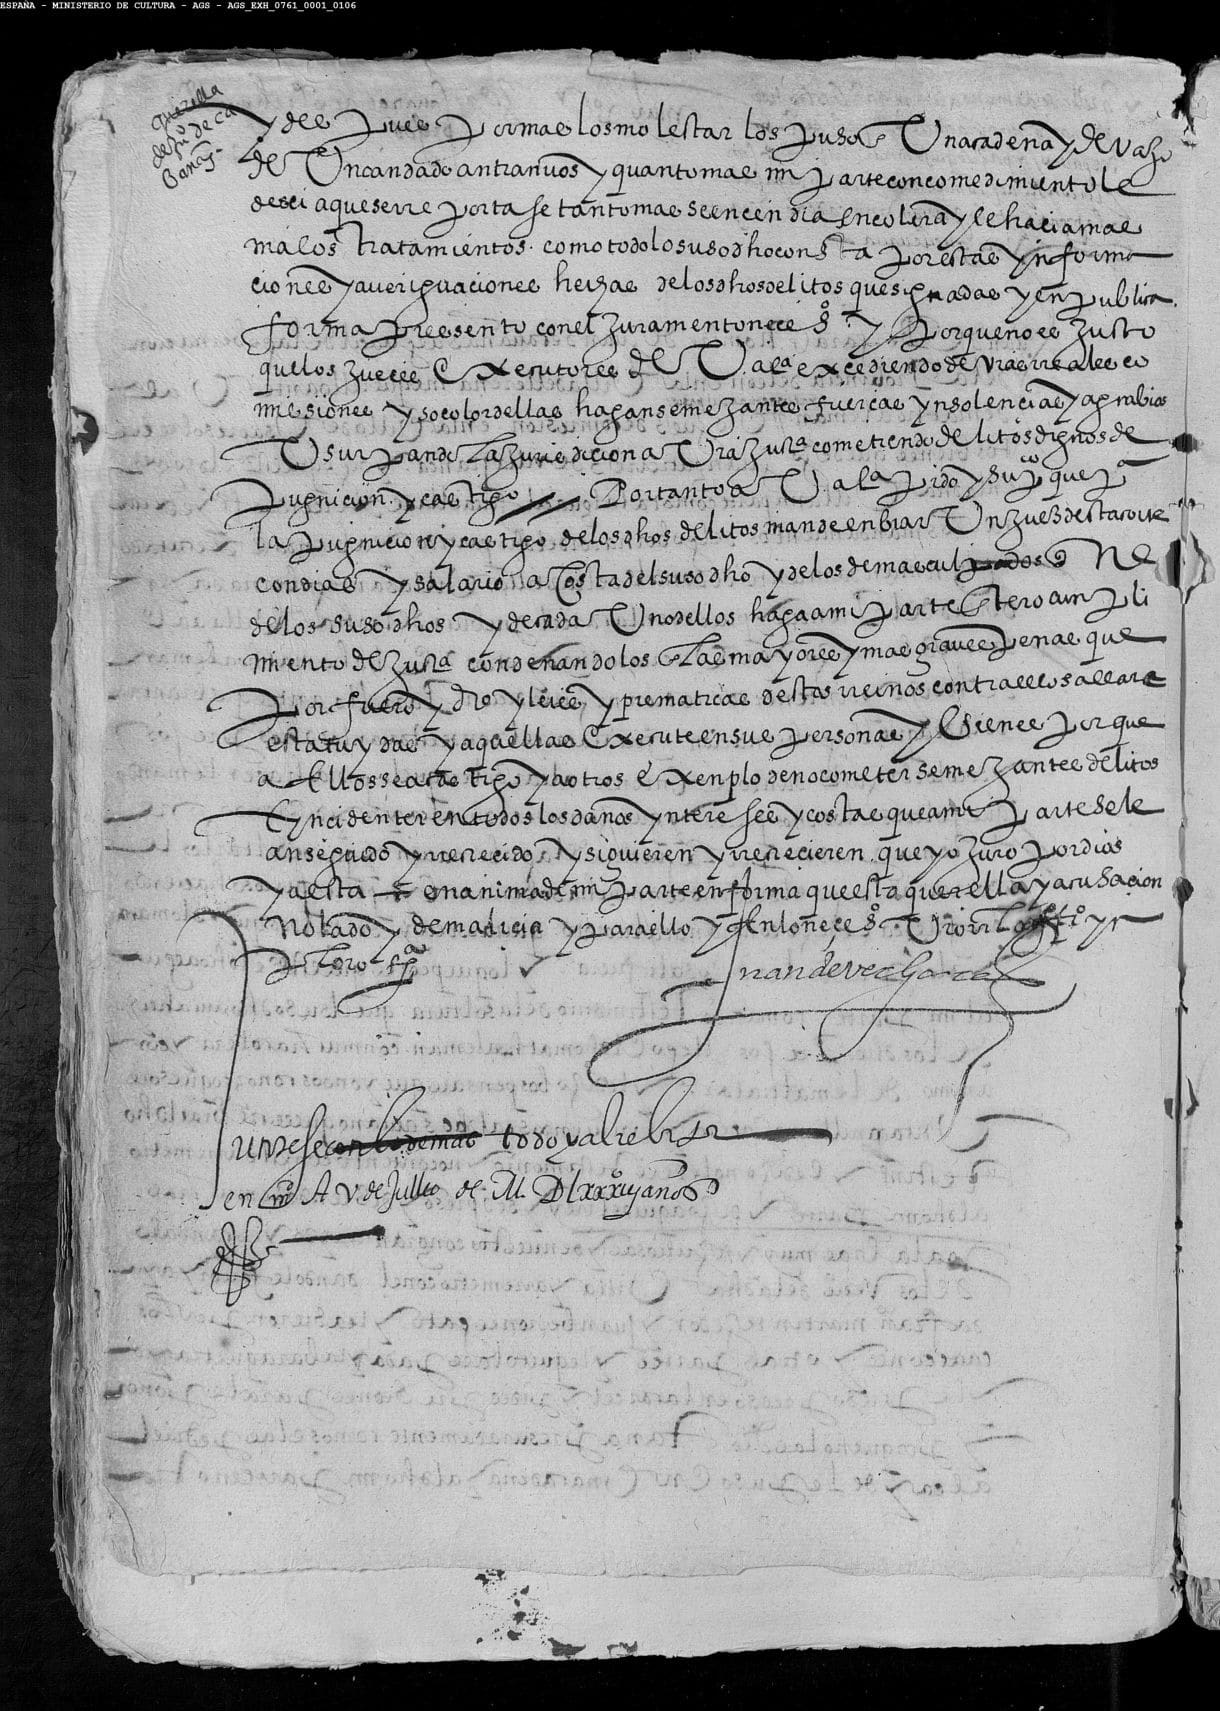 ESPAÑA - MINISTERIO DE CULTURA - AGS - AGS_EXH_0761_0001_0106
querella
de Juº de ca
banas
y des pues por mas los molestar los puso Una cadena y de vaxo
de Un candado antranvos y quanto mas mi parte con comedimiento le
decia que se rreportase tanto mas se encendia en colera y le hacia mas
malos tratamientos como todo lo suso dho consta por estas ynforma
ciones y averiguaciones hechas de los dhos delitos que signadas y en publica
forma presento con el juramento neceº y porque no es justo
que los jueces Executores de V. alª excediendo de vras rreales co
misiones y so color dellas hagan semejantes fuercas ynsolencias y agrabios
Usurpando la jurisdiciona Vra justª cometiendo delitos dignos de
pugnicion y castigo Por tanto a V. alª pido y supco que pª
la pugnicion y castigo de los dhos delitos mande enbiar Un juez desta corte
con dias y salario a costa del suso dho y de los demas culpados
de los suso dhos y de cada Uno dellos haga a mi parte Entero cunpli
miento de justª condenandolos En las mayores y mas graves penas que
por fuero y dro y leies y prematicas destos rreinos contra ellos allare
estatuydas y aquellas Execute en sus personas y bienes porque
a Ellos sea castigo y a otros exenplo de no cometer semejantes delitos
E yncidenter en todos los daños yntereses y costas que a mi parte se le
an seguido y rrecrecido y siguieren y rrecrecieren que yo juro por dios
y a esta en anima de mi parte en forma que esta querella y acusacion
no la do y de malicia y para ello y En lo neceº
el doctor
Juan de
en md A V de Jullio de M. Dlxxxiij años